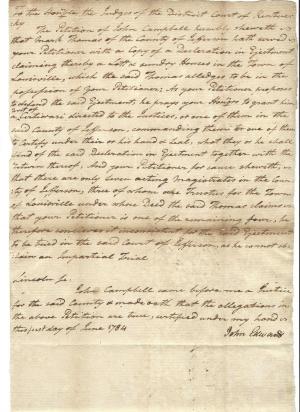 To the Honble the Judges of the District Court of Kentuc-
ky
The Petition of John Campbell humbly sheweth
that Mark Thomas of the County of Jefferson hath served
your Petitioner with a Copy of a Declaration in Ejectment
claiming thereby a Lott & sundry Houses in the Town of
Louisville, which the said Thomas alledges to be in the
possession of Your Petitioner; As your Petitioner proposes
to defend the said Ejectment; he prays your Honors to grant him
a Certiorari directed to the Justices, or one of them in the
said County of Jefferson, commanding them or one of them
to Certify under his or their hand & Seal, what they or he shall
find of the said Declaration in Ejectment together with the
return thereof, And your Petitioner for cause sheweth,
that there are only seven acting Magistrates in the Coun-
ty of Jefferson, three of whom are Trustees for the Town
of Louisville under whose Deed the said Thomas claims
that your Petitioner is one of the remaining four, he
therefore conceives it inconvenient for the said Ejectment
to be tried in the said Court of Jefferson, as he cannot ob-
tain an Impartial Trial
Lincoln Sc.
John Campbell came before me a Justice
for the said County & made oath that the allegations in
the above Petition are true, certified under my hand
this first day of June 1784
John Edwards